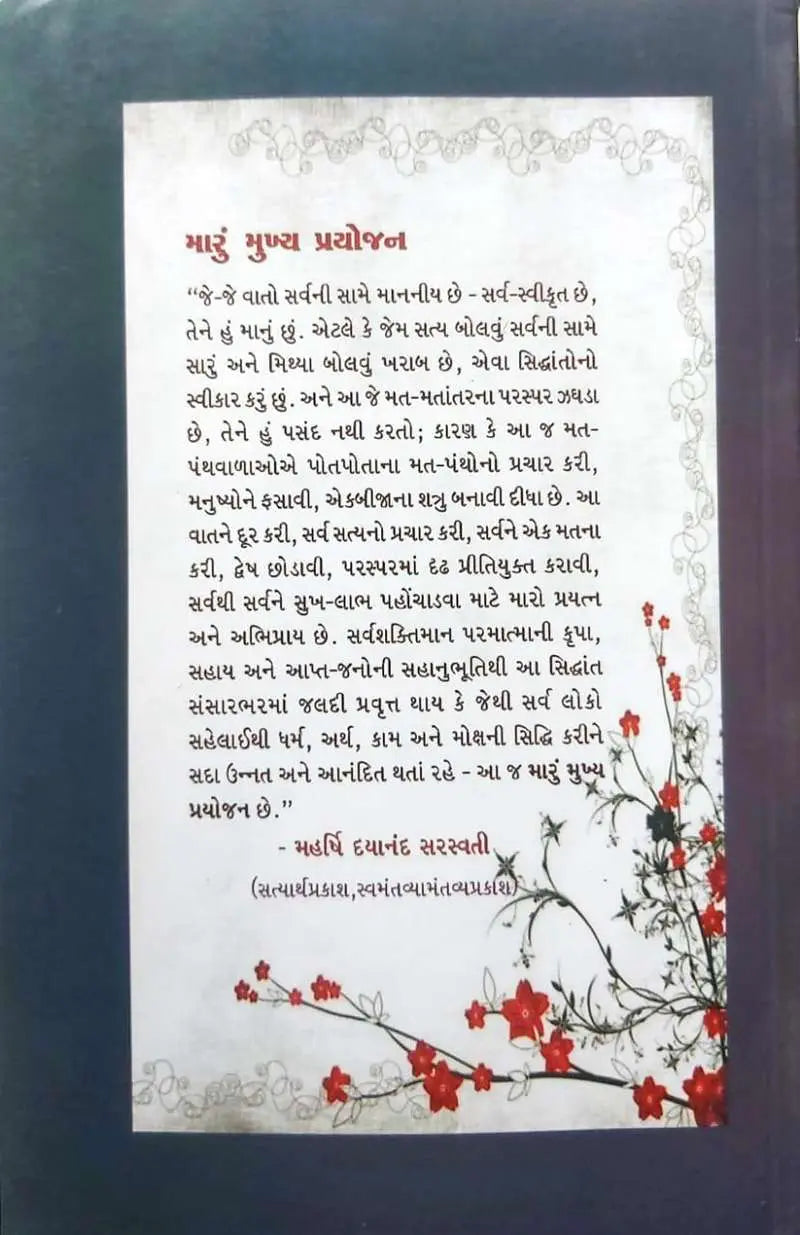 મારું મુખ્ય પ્રયોજન
“જે-જે વાતો સર્વની સામે માનનીય છે - સર્વ-સ્વીકૃત છે,
તેને હું માનું છું. એટલે કે જેમ સત્ય બોલવું સર્વની સામે
સારું અને મિથ્યા બોલવું ખરાબ છે, એવા સિદ્ધાંતોનો
સ્વીકાર કરું છું. અને આ જે મત-મતાંતરના પરસ્પર ઝઘડા
છે, તેને હું પસંદ નથી કરતો; કારણ કે આ જ મત-
પંથવાળાઓએ પોતપોતાના મત-પંથોનો પ્રચાર કરી,
મનુષ્યોને ફસાવી, એકબીજાના શત્રુ બનાવી દીધા છે. આ
વાતને દૂર કરી, સર્વ સત્યનો પ્રચાર કરી, સર્વને એક મતના
કરી, દ્વેષ છોડાવી, પરસ્પરમાં દૃઢ પ્રીતિયુક્ત કરાવી,
સર્વથી સર્વને સુખ-લાભ પહોંચાડવા માટે મારો પ્રયત્ન
અને અભિપ્રાય છે. સર્વશક્તિમાન પરમાત્માની કૃપા,
સહાય અને આપ્ત-જનોની સહાનુભૂતિથી આ સિદ્ધાંત
સંસારભરમાં જલદી પ્રવૃત્ત થાય કે જેથી સર્વ લોકો
સહેલાઈથી ધર્મ, અર્થ, કામ અને મોક્ષની સિદ્ધિ કરીને
સદા ઉન્નત અને આનંદિત થતાં રહે - આ જ મારું મુખ્ય
પ્રયોજન છે.”
- મહર્ષિ દયાનંદ સરસ્વતી
(સત્યાર્થપ્રકાશ,સ્વમંતવ્યામંતવ્યપ્રકાશ)